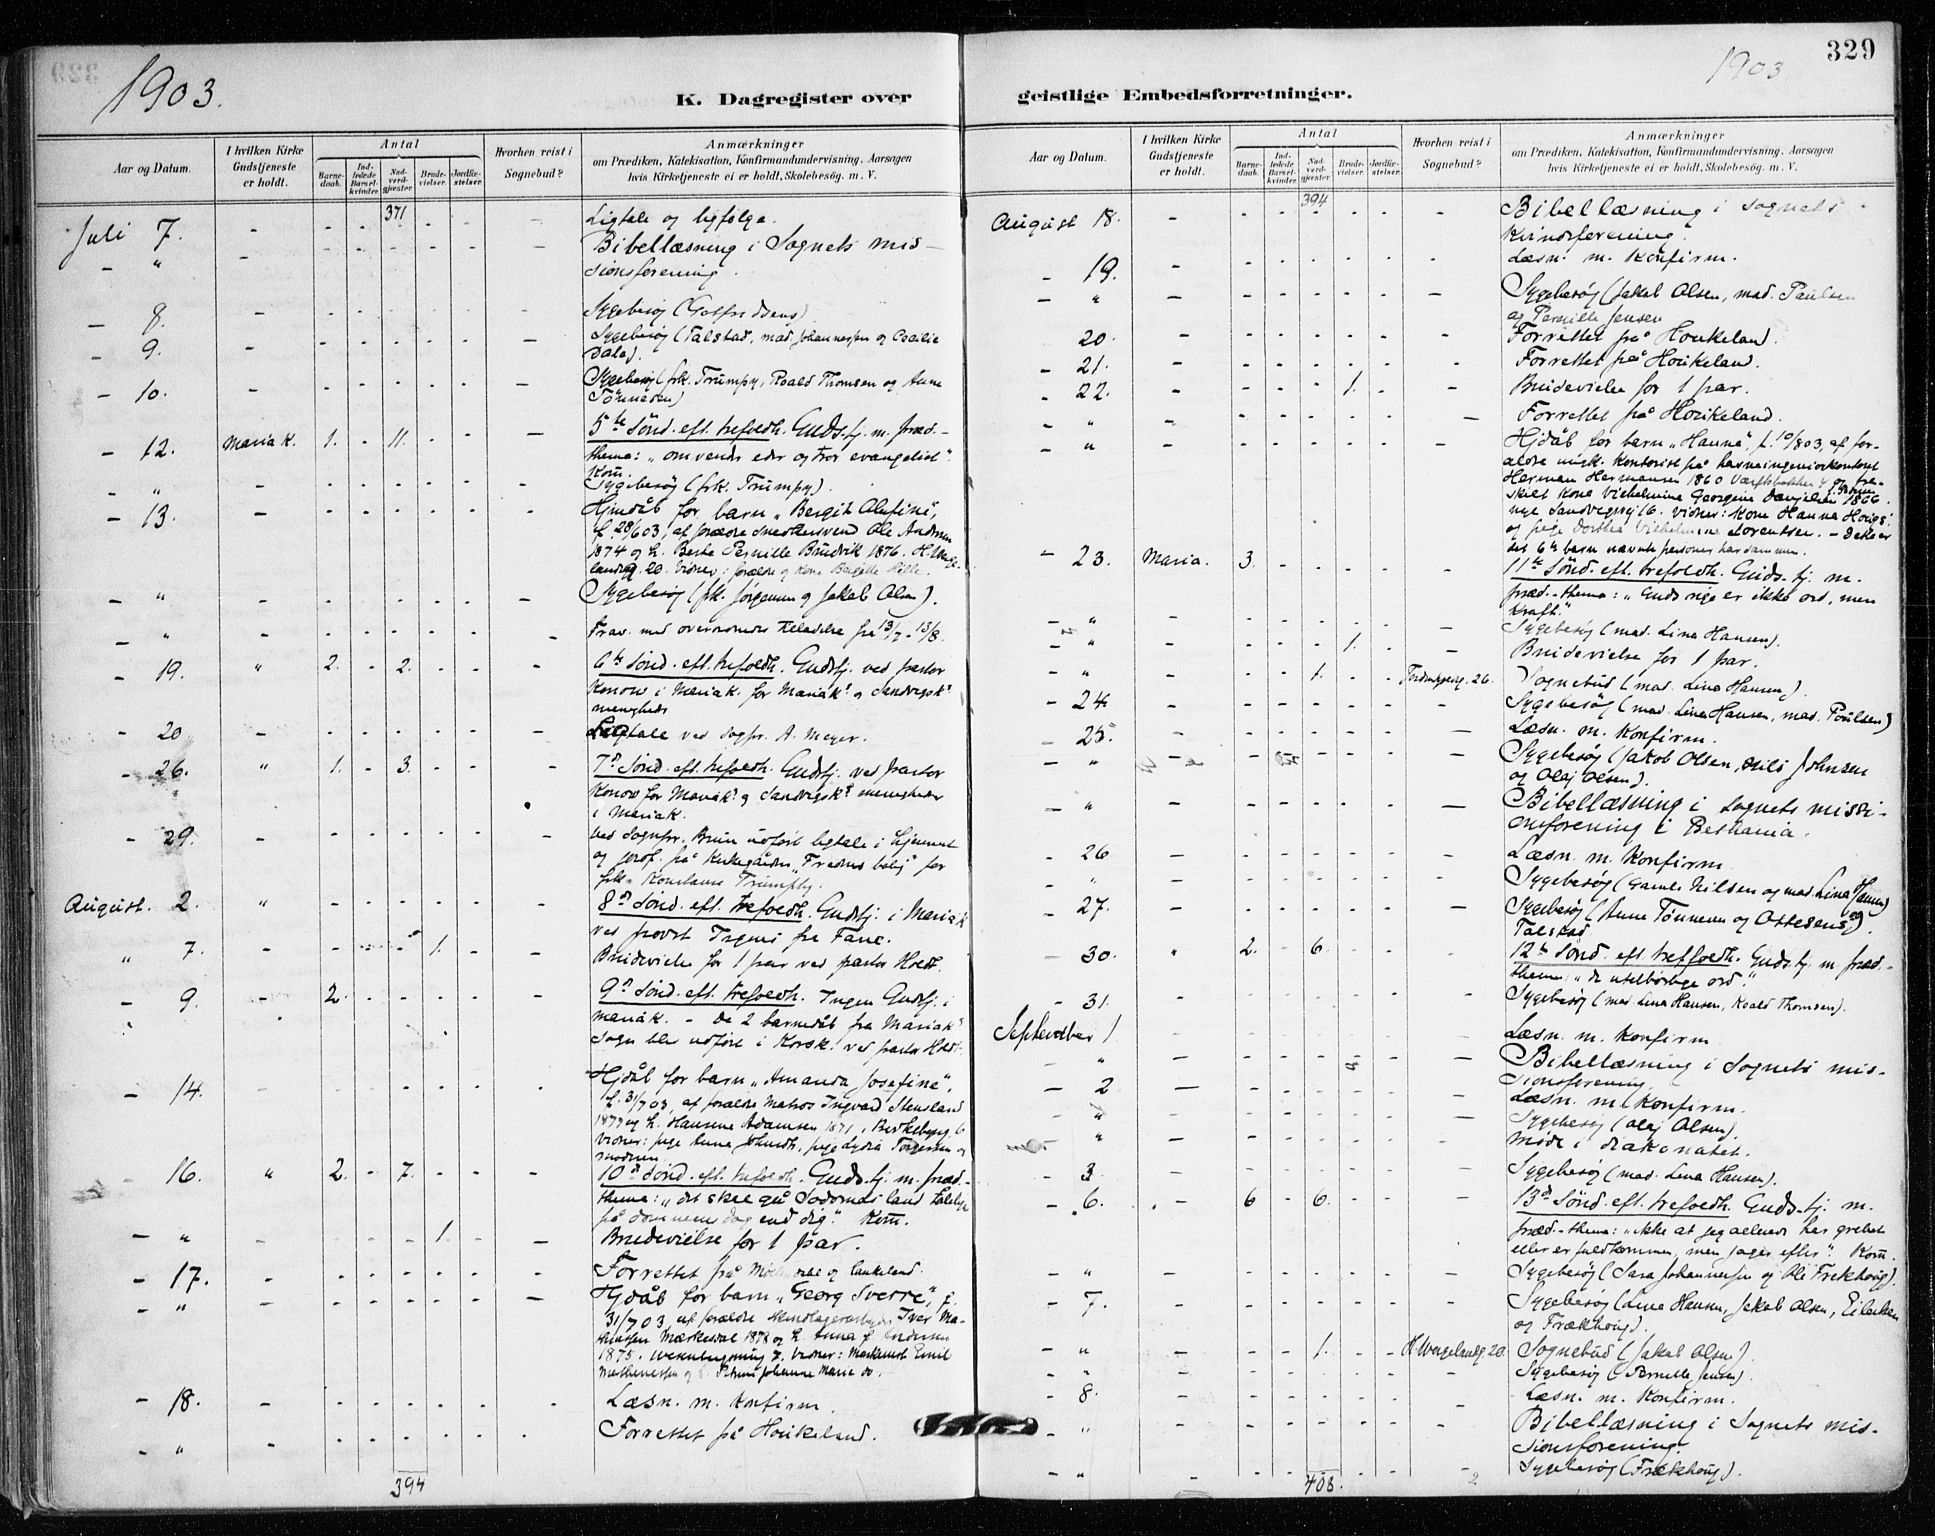 1903.
K. Dagregister over
Aar og Datum.
I hvilken Kirke Gudstjeneste er holdt.
Antal
Barnedaab.
Indledede Barselkvinder.
Nadverdgjester
Brudevielser.
Jordfæstelser.
Hvorhen reist i Sognebud?
Anmærkninger
om Prædiken, Katekisation, Konfirmandundervisning. Aarsagen
hvis Kirketjeneste ei er holdt, Skolebesøg. m. V.
371.
Juli 7. Ligtale og ligfølge.
- " Bibellæsning i Sognets mis-
sionsforening.
- 8. Sygebesøg
- 9. Sygebesøg (Talstad, mad. Johannessen og Cecilie
Dale).
- 10. Sygebesøg (frk. Trumpy, Roald Thomsen og Anne
Tönnesen)
- 12. Mariak. 1. - 11. 5te Sönd. eft. trefoldh. Gudstj. m. præd.-
thema: "omvender eder og tror evangeliet".
Kom.
- " Sygebesøg (frk. Trumpy).
- 13. Hjmdåb for barn "Bergit Alufine",
f. 28/6 03, af forældre Ole
1874 og h. Berte Pernille Brudvik 1876.
20. vidner: forældre og kone
- " Sygebesøg (frk. Jörgensen og Jakob Olsen).
- " Frav. med overordnedes tilladelse fra 13/7 - 13/8.
- 19. " 2. - 2. 6te Sönd. eft. trefoldh. Gudstj. ved pastor
Konow i Mariak. for Mariak.s og Sandvigsk.s
menigheder
- 20 Ligtale ved sogpr. A. Meyer.
- 26. " 1. - 3. 7de Sönd. eft. trefoldh. Gudstj. ved pastor
Konow for Mariak.s og Sandvigsk.s menigheder
i Mariak.
- 29. Ved Sognpr. Bruun udført ligtale i hjemmet
og jordf. på Kirkegården "Fredens bolig" for
frk. Konstance Trumphy.
August. 2. " 8de Sönd. eft. trefoldh. Gudstj. i Mariak
ved provst fra Fane.
" 7. 1. Brudevielse for 1 par ved pastor Holdt.
- 9. - 2. 9de Sönd. eft. trefoldh. Ingen Gudstj. i
Mariak. - De 2 barnedåb fra Mariak.s
Sogn blev udført i Korsk. ved pastor Holdt.
- 14. Hjdåb for barn "Amanda Josefine",
f. 31/7 03, af forældre Matros Ingvard Stensland
1877 og h. Hansine Adamsen 1871, 6
vidner: pige Anna pige Lydia Torgersen og
moderen
- 16. " 2. - 7. 10de Sönd. eft. trefoldh. Gudstj. m. præd.-
thema: "det skal gå Sodomas land tåleligere
på dommens dag end dig." Kom.
- " 1. Brudevielse for 1 par.
- 17. Forrettet på og Laukeland.
- " Hjdåb for barn "Georg Sverre", f.
31/7 03 af forældre Iver Ma-
1878 og h. Anna f. Andersen
1875. 7. vidner: Emil
Mathiesen og Johanne Marie do.
- 18. Læsn. m. Konfirm.
- " Forrettet på Houkeland.
394
1903
329
geistlige Embedsforretninger.
Aar og Datum.
I hvilken Kirke Gudstjeneste er holdt.
Antal
Barnedaab.
Indledede Barselkvinder.
Nadverdgjester
Brudevielser.
Jordfæstelser.
Hvorhen reist i Sognebud?
Anmærkninger
om Prædiken, Katekisation, Konfirmandundervisning. Aarsagen
hvis Kirketjeneste ei er holdt, Skolebesøg m. V.
394
August 18. Bibellæsning i Sognets
Kvindeforening.
- 19. Læsn. m. Konfirm.
- " Sygebesøg (Jakob Olsen, mad. Paulsen
og Pernille Jensen
20. Forrettet på Houkeland.
- 21. Forrettet på Houkeland.
- 22. 1. Brudevielse for 1 par.
- " Forrettet på Houkeland.
- " Hjdåb for barn "Hanna", f. 10/8 03, af for-
ældre Kontorist på havneingeniørkontoret
Herman Hermansen 1860 og fra-
skilt kone Vilhelmine Georgine Danielsen 1866
nye Sandvigsvej 16. vidner: Kone Hanna
og pige Dorthea Vilhelmine Lorentsen. - Dette er
det 6te barn nævnte personer har sammen.
- 23. Maria. 3. 11te Sönd. eft. trefoldh. Gudstj. m.
præd.-thema: "Guds rige er ikke ord, men
kraft."
- " Sygebesøg (mad. Lina Hansen).
- " 1. Brudevielse for 1 par.
- " 1. 26. Sognebud (mad. Lina Hansen).
- 24 Sygebesøg (mad. Lina Hansen, mad. Poulsen)
- 25. Læsn. m. Konfirm.
- " Sygebesøg (Jakob Olsen, Nils Johnsen
og Olaj Olsen).
- " Bibellæsning i Sognets missi-
onsforening i Bethania.
- 26 Læsn. m. Konfirm.
" Sygebesøg (Gamle Nilsen og mad. Lina Hansen)
- 27. Sygebesøg (Anne Tönnesen og Ottesens og
Talstad).
- 30. " 2. 6. 12te Sönd. eft. trefoldh. Gudstj. m. præd.-
thema: "de utilbørlige ord".
- 31. Sygebesøg (mad Lina Hansen, Roald Thomsen).
September 1. Læsn. m. Konfirm.
- " Bibellæsning i Sognets mis-
sionsforening.
- 2 Læsn. m. Konfirm.
- " Sygebesøg (Olaj Olsen).
- " Møde i diakonatet.
- 3. Sygebesøg (mad. Lina Hansen).
- 6. 6 - 6. 13de Sönd. eft. trefoldh. Gudstj. m.
præd.-thema: "ikke at jeg allerede har grebet
eller er fuldkommen, men jager efter". Kom.
- " Sygebesøg (Sara Johannesen og Ole Frekhaug).
- 7. Sygebesøg (Lina Hansen, Jakob Olsen, Eilertsen
og Frækhoug).
- " 1. H. Wergelandsg 20. Sognebud (Jakob Olsen).
- " Sygebesøg (Pernille Jensen).
- 8. Læsn. m. Konfirm.
- " Bibellæsning i Sognets mis-
sionsforening.
- " Sygebesøg (Frækhoug).
408.